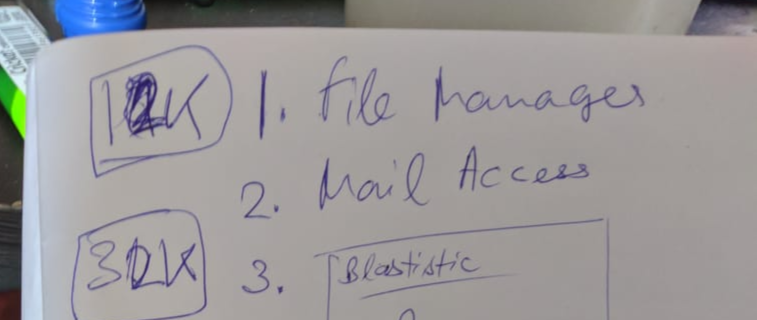 12K 1. File Manager
2. Mail Access
3. Blastistic